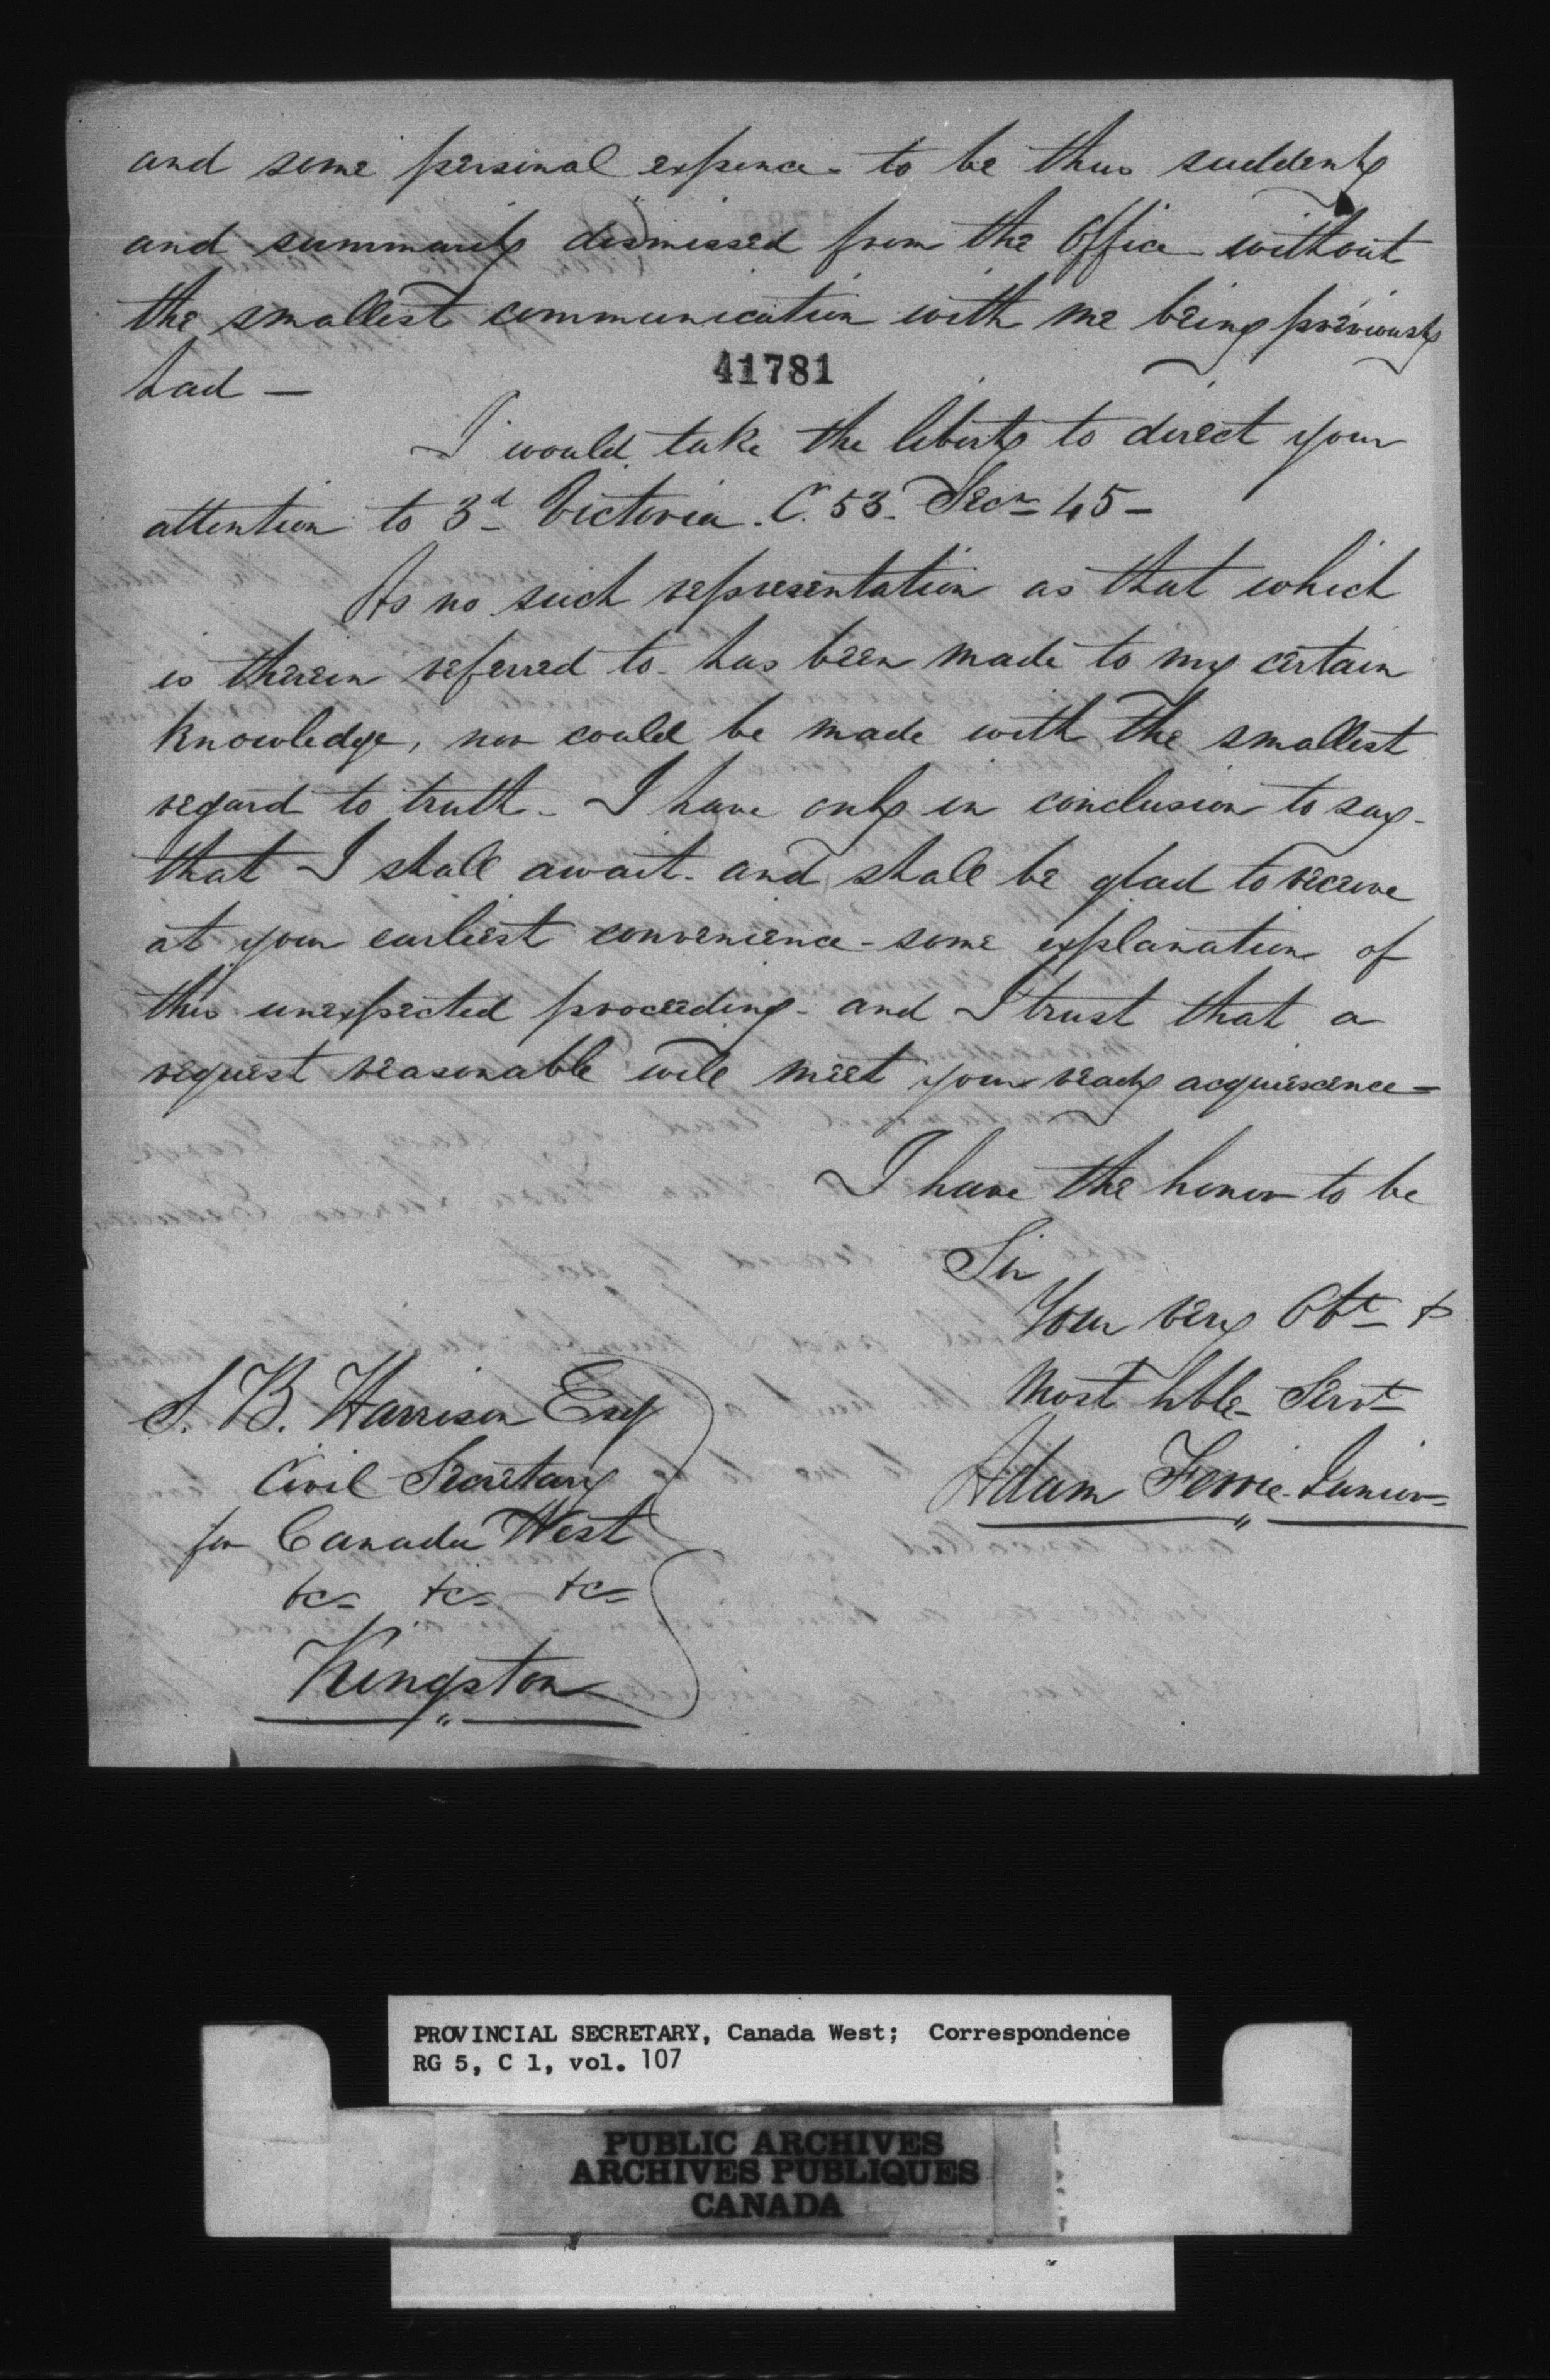 and some personal expence - to be thus suddenly
and summarily dismissed from the Office - without
the smallest communication with me being previously
had —
41781
I would take the liberty to direct your
attention to 3d Victoria. C. 53. Secn 45 -
As no such representation as that which
is therein referred to - has been made to my certain
knowledge, nor could be made with the smallest
regard to truth - I have only in conclusion to say -
that I shall await - and shall be glad to receive
at your earliest convenience - some explanation of
this unexpected proceeding - and I trust that a
request reasonable will meet your ready acquiescence =
I have the honor to be
Sir
Your very Obt &
Most hble Servt
Adam Ferrie Junior
S. B. Harrison Esq
Civil Secretary
for Canada West
&c &c &c
Kingston
PROVINCIAL SECRETARY, Canada West; Correspondence
RG 5, C 1, vol. 107
PUBLIC ARCHIVES
ARCHIVES PUBLIQUES
CANADA